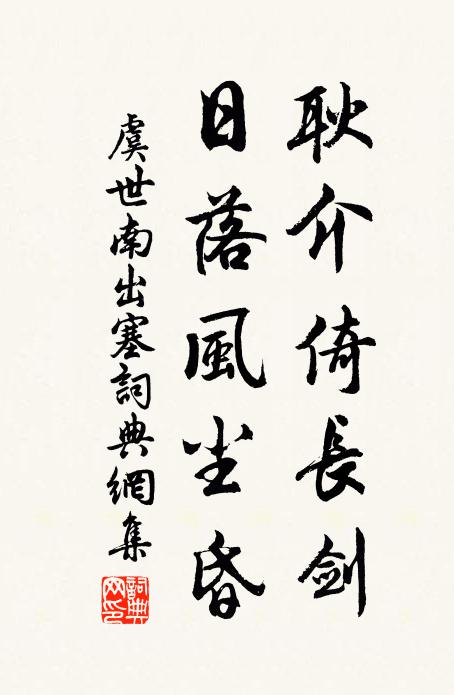 耿介倚長劍
日落風尘昏
虞世南出塞詞典網集
詞典
网印